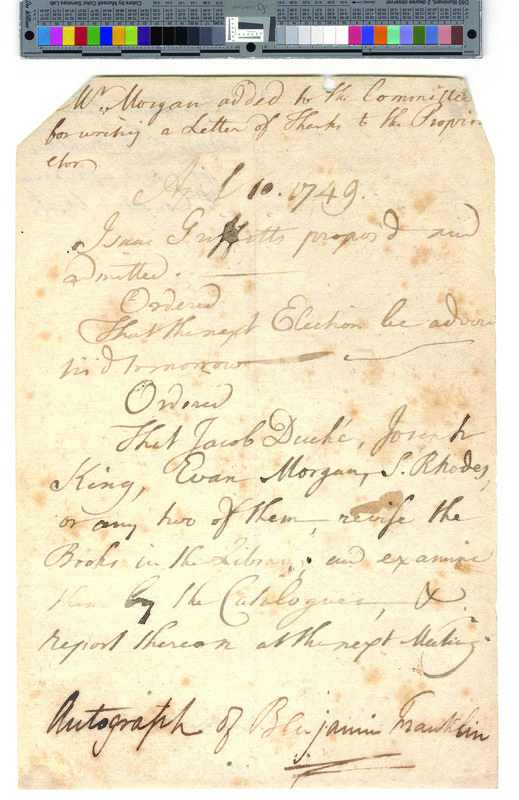 Mr. Morgan added to the Committee
for writing a Letter of Thanks to the Propri-
etor
Apl 10. 1749.
Isaac Griffitts propos'd and
admitted.
Ordered
That the next Election be adver
tis'd tomorrow
Ordered
That Jacob Duché, Joseph
King, Evan Morgan, S. Rhodes,
or any two of them, revise the
Books in the Library; and examine
them by the Catalogues, &
report thereon at the next Meeting.
Autograph of Benjamin Franklin